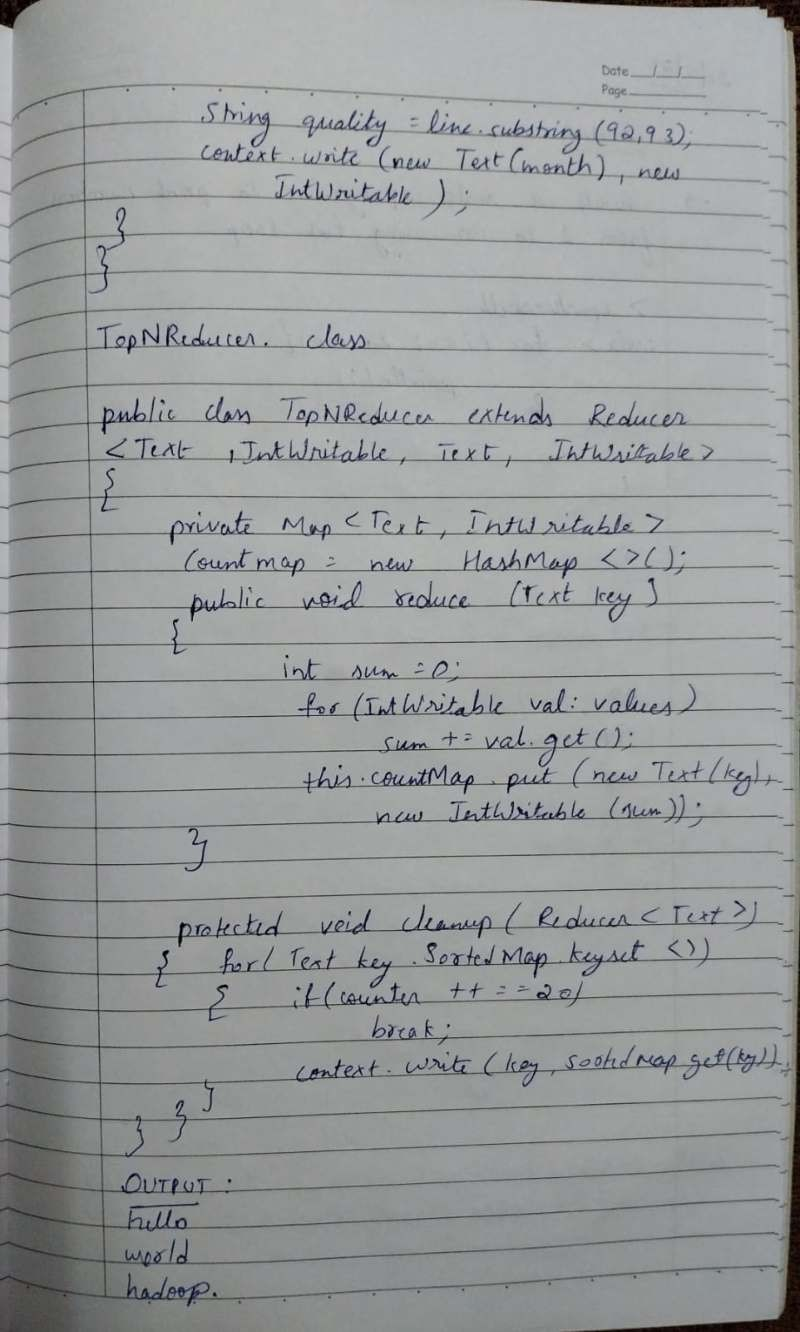 Date __/__/__
Page
String quality = line.substring (92,93);
context.write (new Text(month), new
IntWritable );
}
}
TopNReducer. class
public class TopNReducer extends Reducer
<Text , IntWritable, Text, IntWritable>
{
private Map <Text, IntWritable>
Countmap = new HashMap <>();
public void reduce (Text key)
{
int sum = 0;
for (IntWritable val: values)
sum += val.get();
this.countMap.put (new Text(key),
new IntWritable (sum));
}
protected void cleanup ( Reducer < Text >)
{ for( Text key . SortedMap. keyset <>)
{ if (counter ++ == 20)
break;
context. write (key, sortedmap get(key));
}
} }
OUTPUT :
hello
world
hadoop.